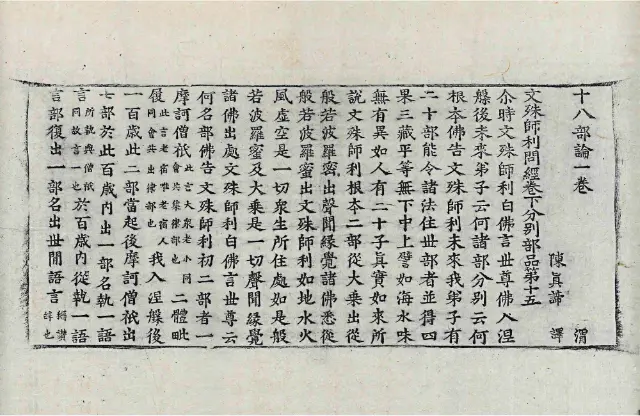 十八部論一卷 渭
陳眞諦 譯
文殊師利問經卷下分別部品第十五
尒時文殊師利白佛言世尊佛入涅
槃後未來弟子云何諸部分別云何
根本佛告文殊師利未來我弟子有
二十部能令諸法住世部者並得四
果三藏平等無下中上譬如海水味
無有異如人有二十子眞實如來所
說文殊師利根本二部從大乗出從
般若波羅蜜出聲聞緣覺諸佛悉從
般若波羅蜜出文殊師利如地水火
風虛空是一切衆生所住處如是般
若波羅蜜及大乗是一切聲聞緣覺
諸佛出處文殊師利白佛言世尊云
何名部佛告文殊師利初二部者一
摩訶僧祇此言大衆老小同會共集律部也二體毗
履此言老宿唯老宿人同會共出律部也我入涅槃後
一百歲此二部當起後摩訶僧祇出
七部於此百歲內出一部名執一語
言所執與僧祇同故言一也於百歲內從執一語
言部復出一部名出世間語言稱讚辝也